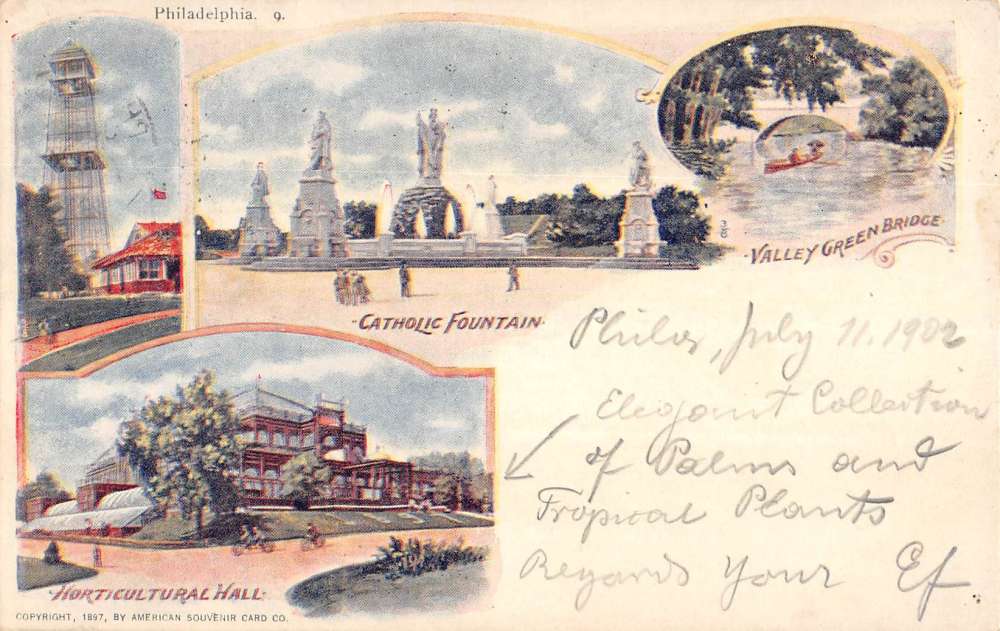 Philadelphia. 9.
CATHOLIC FOUNTAIN
VALLEY GREEN BRIDGE
Phila, July 11. 1902
Elegant Collection
of Palms and
Tropical Plants
Regards Your Ef
HORTICULTURAL HALL
COPYRIGHT, 1897, BY AMERICAN SOUVENIR CARD CO.